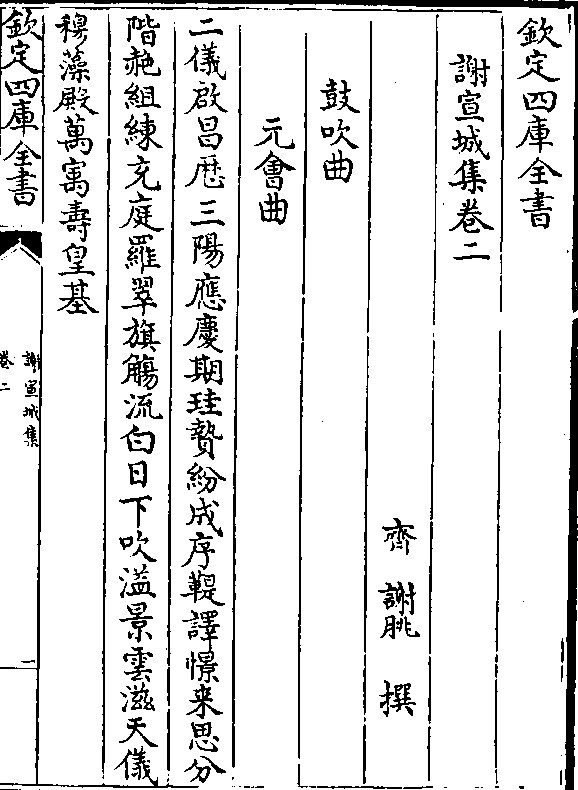 欽定四庫全書
謝宣城集卷二
齊　謝朓　撰
鼓吹曲
元會曲
二儀啟昌厯三陽應慶期珪贄紛成序鞮譯憬来思分
階赩組練充庭羅翠旗觴流白日下吹溢景雲滋天儀
穆藻殿萬㝢壽皇基
欽定四庫全書
謝宣城集
卷二
一